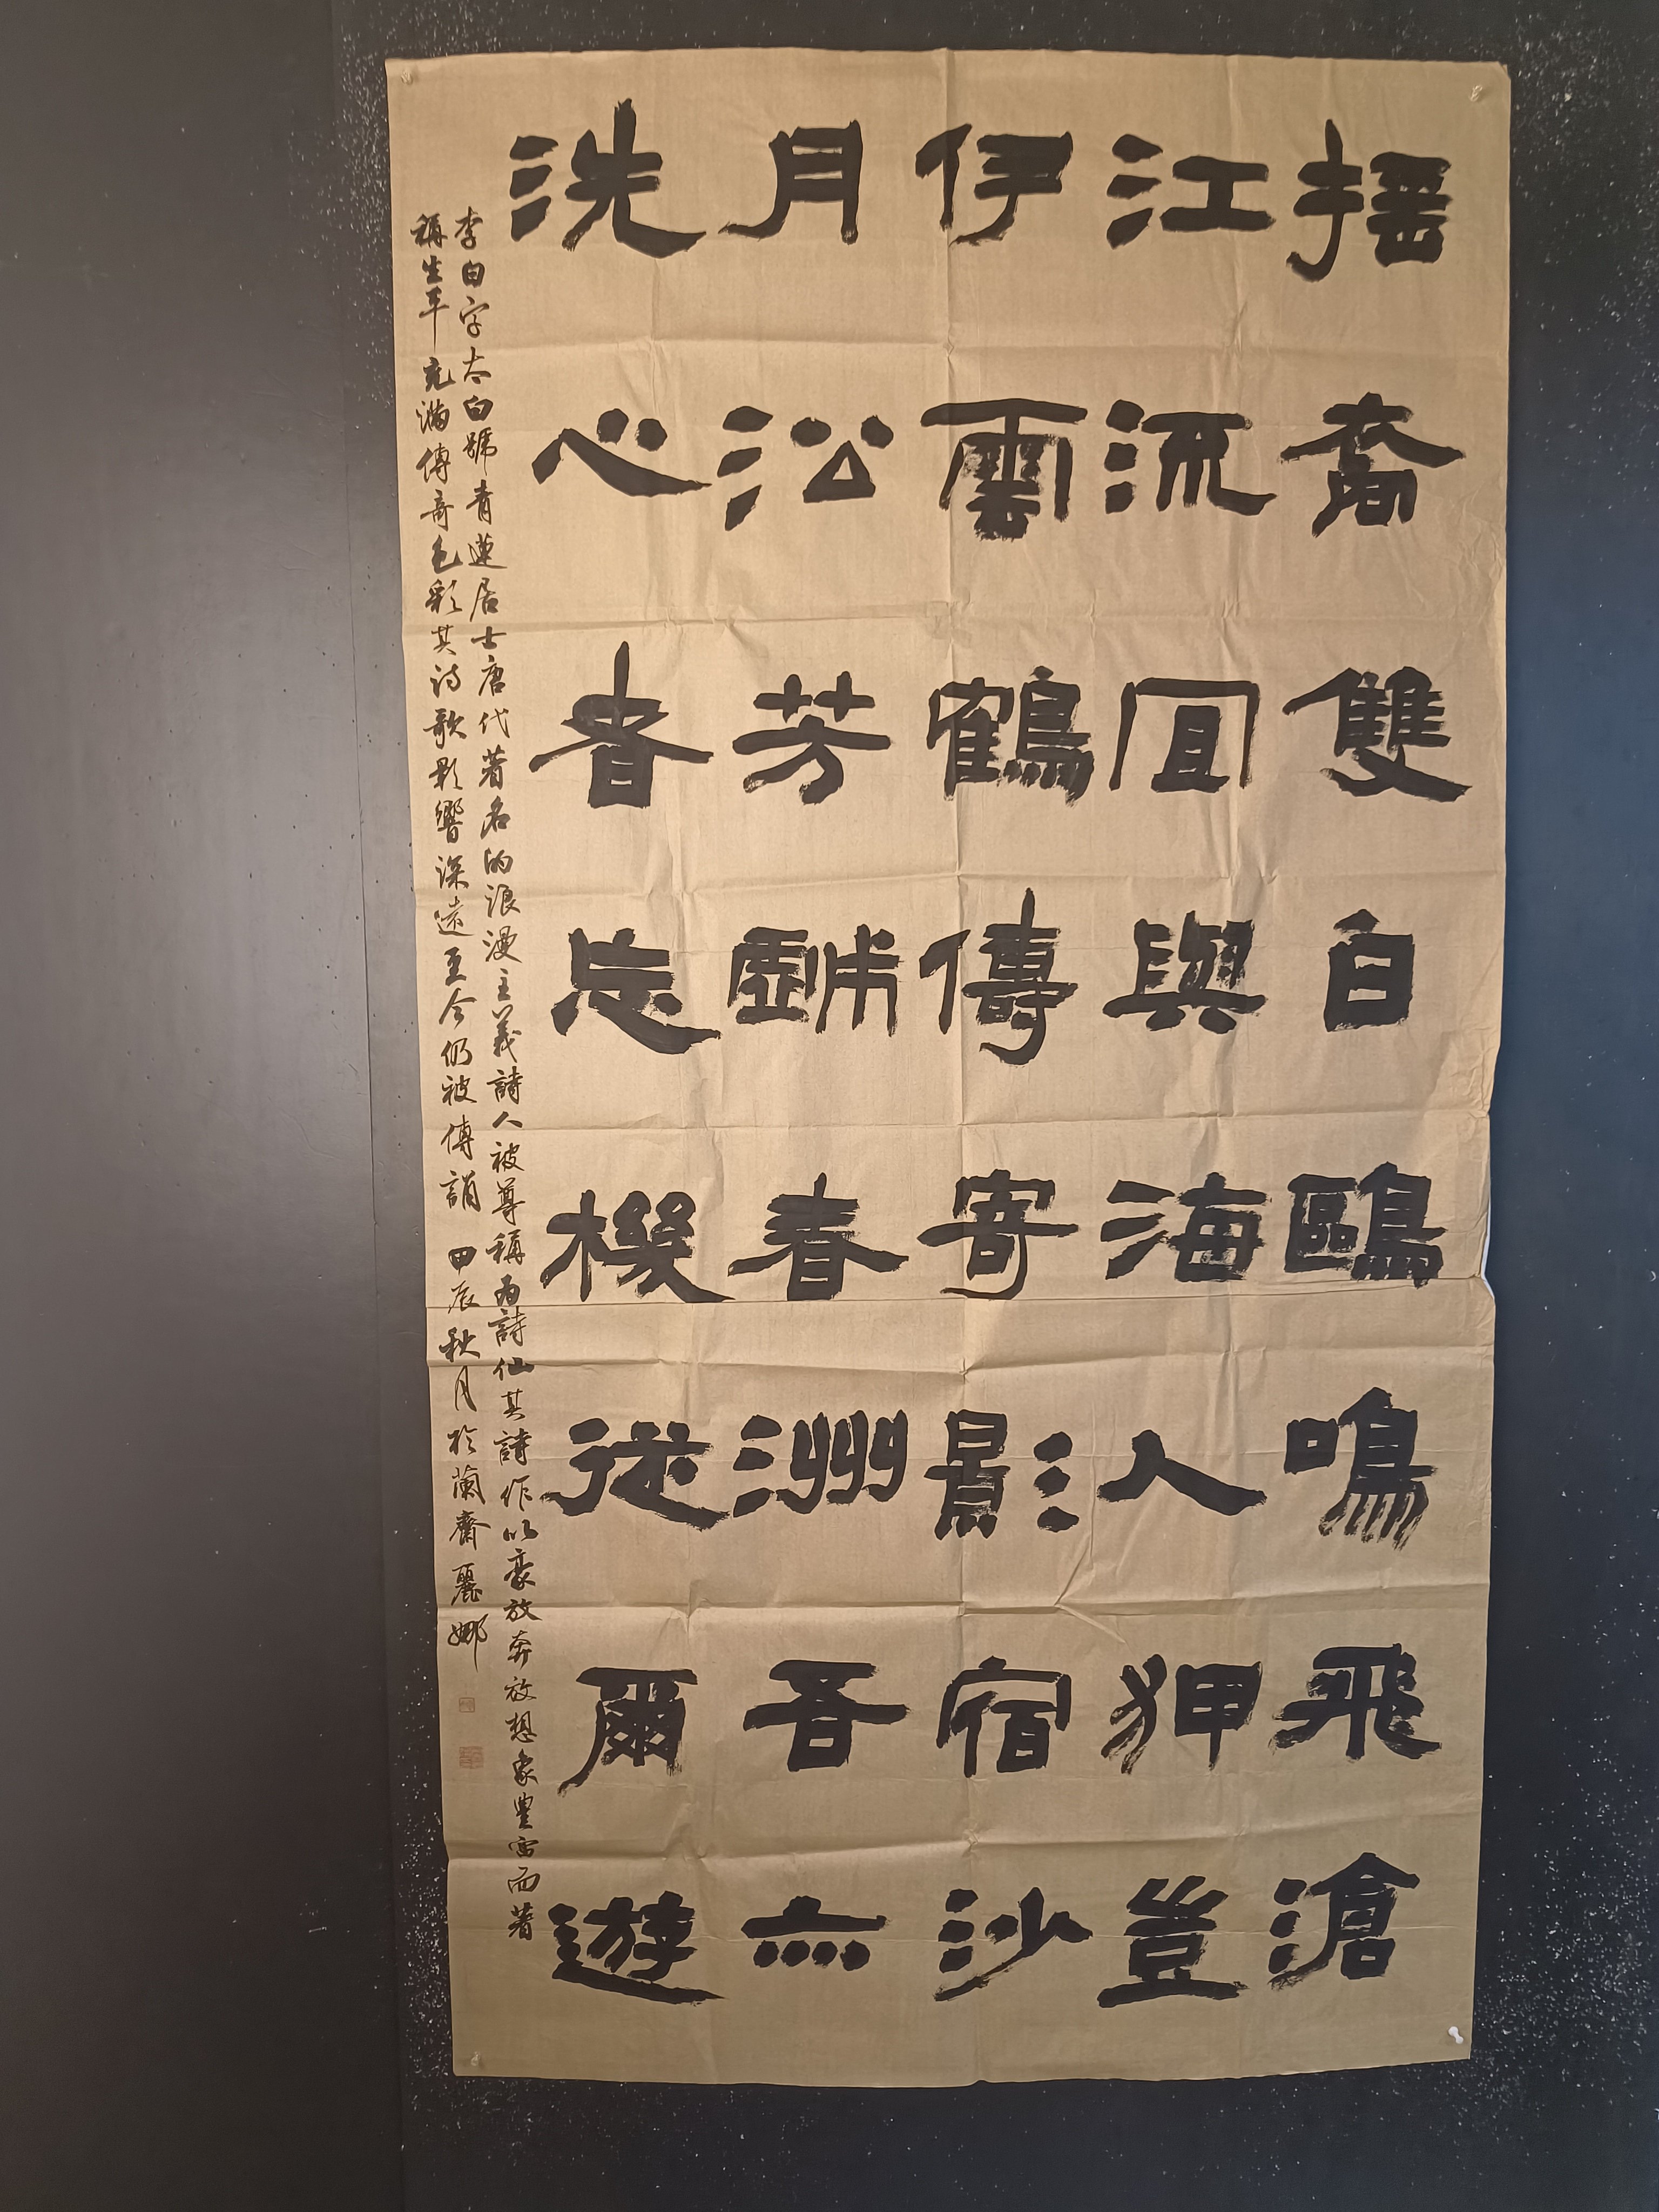 摇裔雙白鷗鳴飛滄
江流冝與海人狎豈
伊雲鶴傳寄影宿沙
月㳂芳戲春洲吾亦
洗心者忘機從爾遊
李白字太白號青蓮居士唐代著名的浪漫主義詩人被尊稱為詩仙其詩作以豪放奔放想象豐富而著
稱生平充滿傳奇色彩其诗歌影響深遠至今仍被傳誦 甲辰秋月於蘭齋麗娜